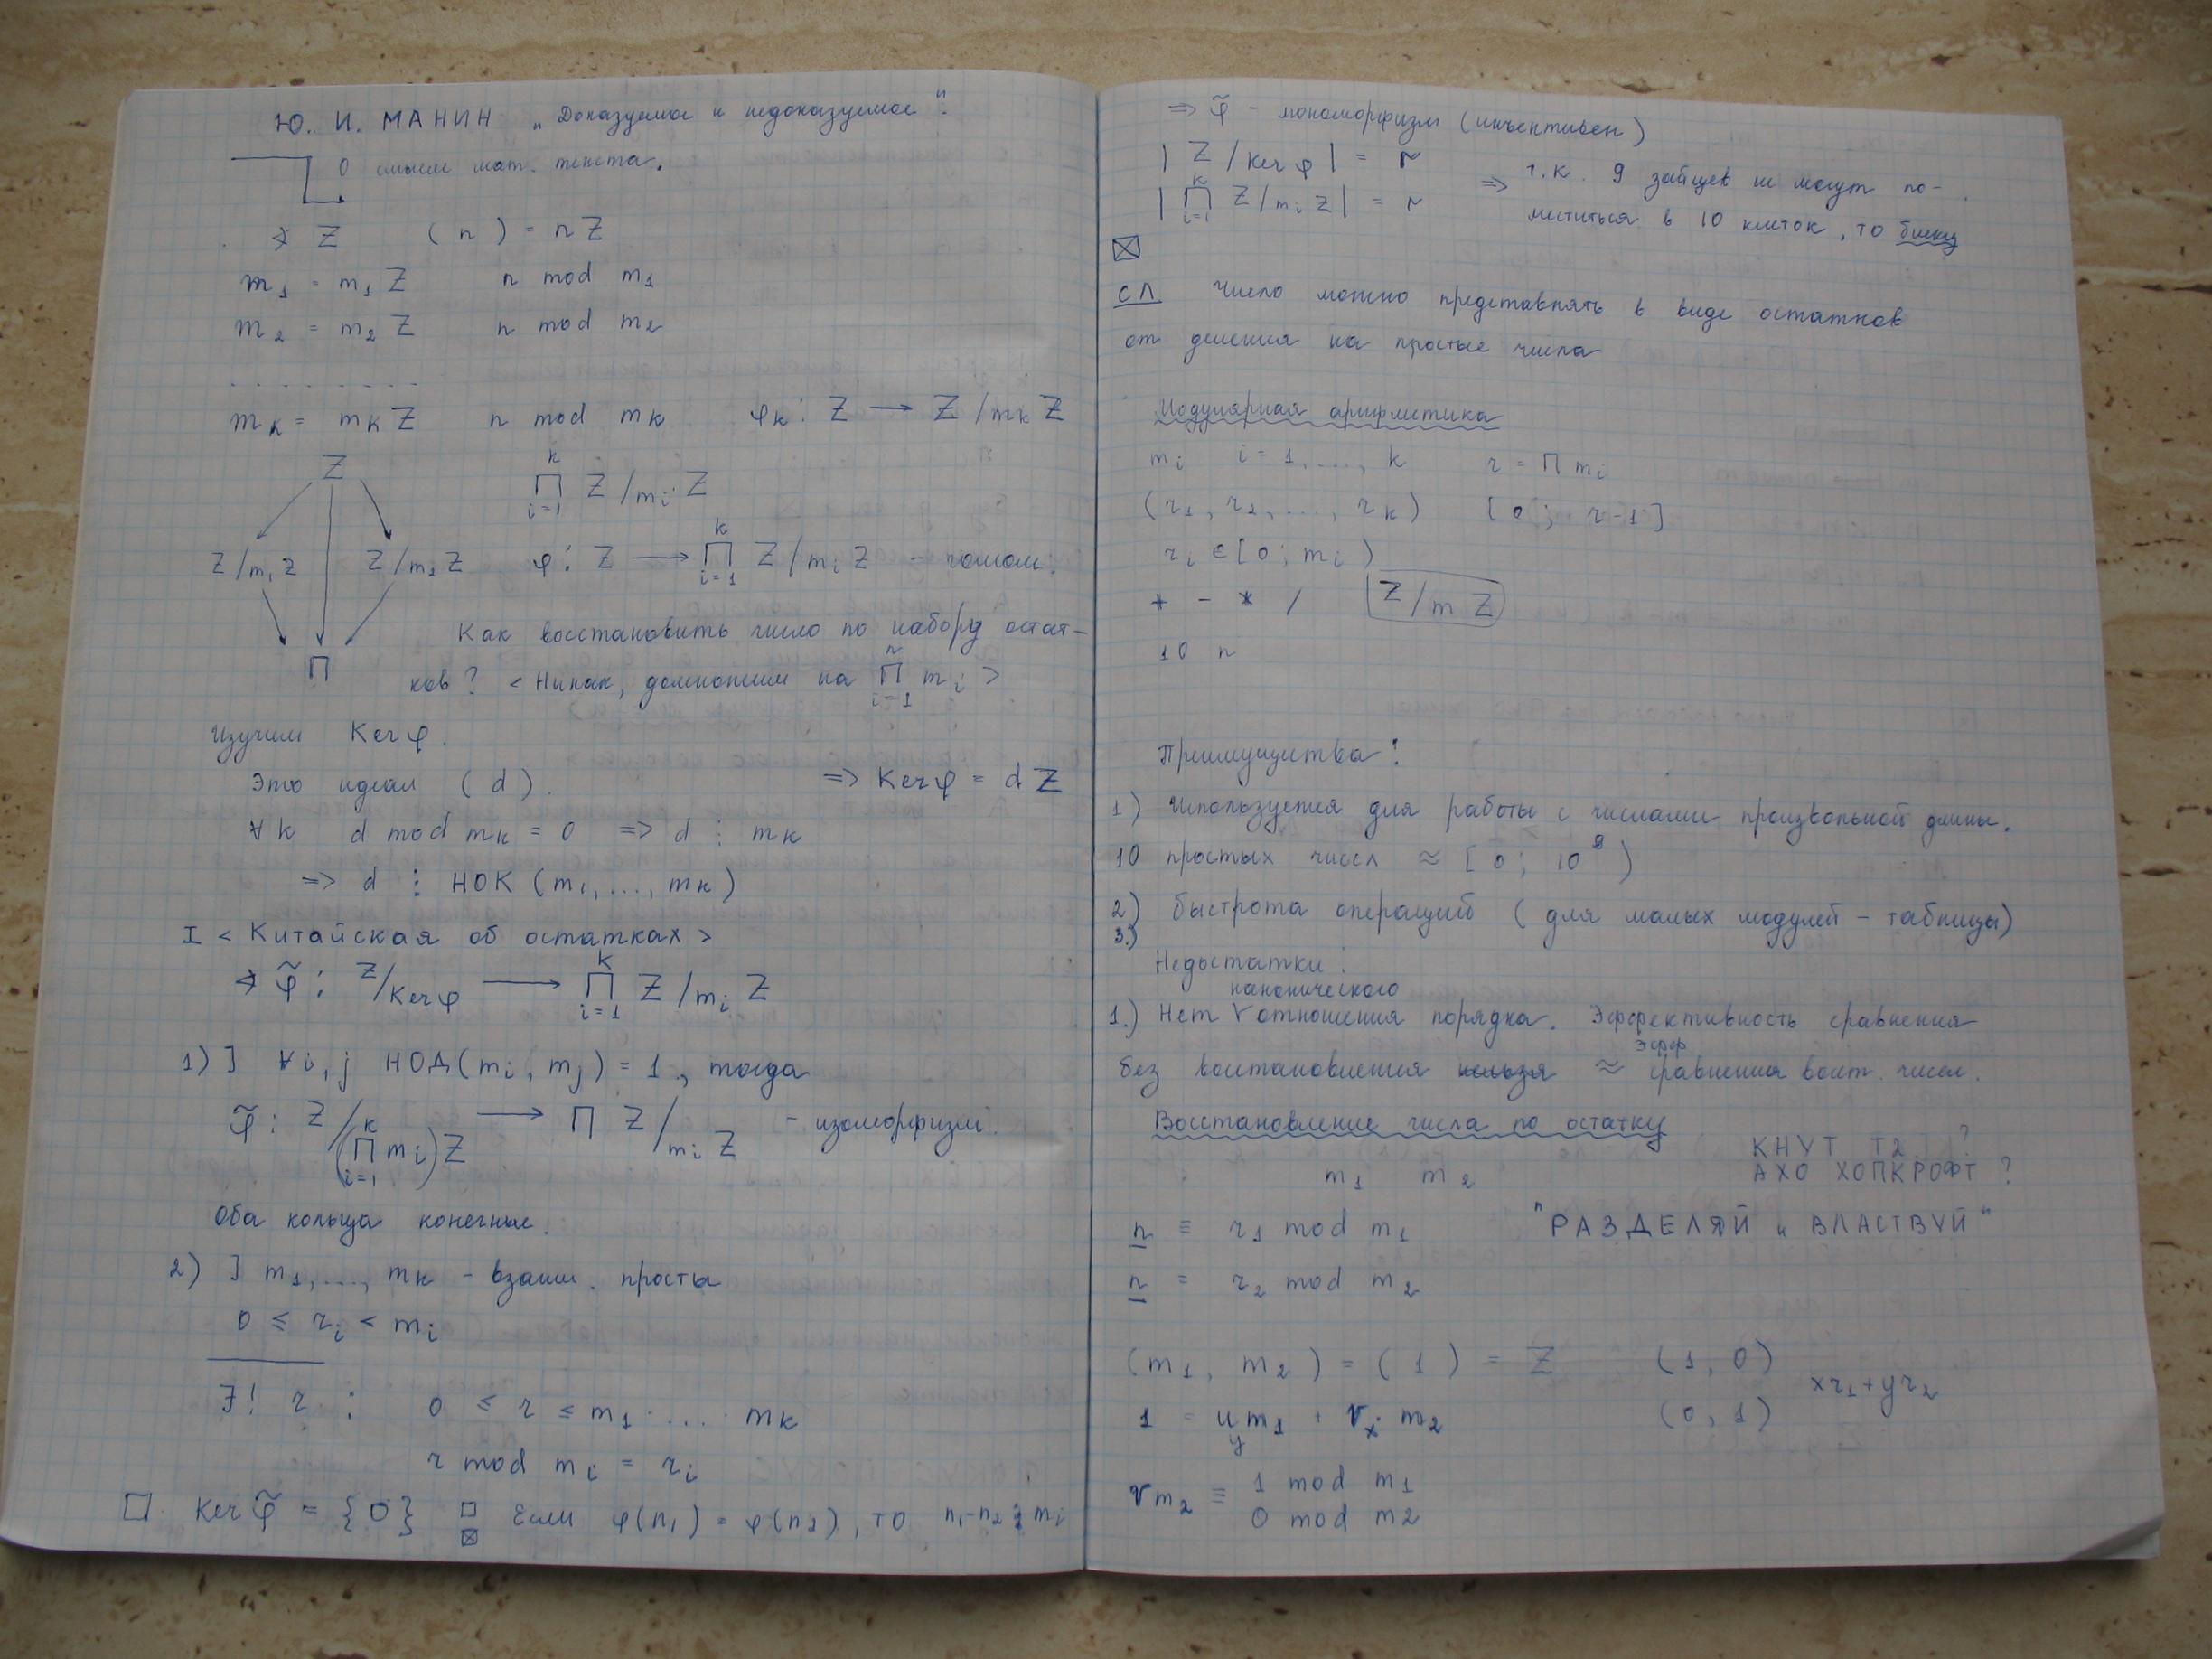 Ю. И. МАНИН „Доказуемое и недоказуемое".
О смысле мат. текста.
∢ Z (n) = nZ
m₁ = m₁Z n mod m₁
m₂ = m₂Z n mod m₂
. . . . . . . . .
mₖ = mₖZ n mod mₖ φₖ: Z → Z/mₖZ
Z
∏ᵢ₌₁ᵏ Z/mᵢZ
Z/m₁Z Z/m₂Z φ: Z → ∏ᵢ₌₁ᵏ Z/mᵢZ – гомом.
Как восстановить число по набору остат-
П
ков? < Никак, домножим на ∏ᵢ₌₁ⁿ mᵢ >
Изучим Ker φ.
Это идеал (d). => Ker φ = dZ
∀k d mod mₖ = 0 => d ⋮ mₖ
=> d ⋮ НОК (m₁, ..., mₖ)
I < Китайская об остатках >
∢ φ̃: Z/Ker φ → ∏ᵢ₌₁ᵏ Z/mᵢZ
1) ] ∀i, j НОД(mᵢ, mⱼ) = 1, тогда
φ̃: Z/(∏ᵢ₌₁ᵏ mᵢ)Z → ∏ Z/mᵢZ – изоморфизм.
Оба кольца конечные.
2) ] m₁, ..., mₖ – взаим. просты
0 ≤ rᵢ < mᵢ
∃! r : 0 ≤ r ≤ m₁ · ... · mₖ
r mod mᵢ = rᵢ
□ Ker φ̃ = {0} □ Если φ(n₁) = φ(n₂), то n₁-n₂ ⋮ mᵢ
⊠
=> φ̃ – мономорфизм (инъективен)
| Z/Ker φ | = r
| ∏ᵢ₌₁ᵏ Z/mᵢZ | = r => т.к. 9 зайцев не могут по-
меститься в 10 клеток, то биекц
⊠
СЛ. Число можно представлять в виде остатков
от деления на простые числа
Модулярная арифметика
mᵢ i = 1, ..., k r = ∏ mᵢ
(r₁, r₂, ..., rₖ) [0; r-1]
rᵢ ∈ [0; mᵢ)
+ - * / Z/mZ
10 n
Преимущества:
1) Используется для работы с числами произвольной длины.
10 простых чисел ≈ [0; 10⁹)
2) Быстрота операций (для малых модулей – таблицы)
3.)
Недостатки:
канонического
1.) Нет V отношения порядка. Эффективность сравнения
эфф
без восстановления нельзя ≈ сравнения восст. чисел.
Восстановление числа по остатку
КНУТ Т2 ?
АХО ХОПКРОФТ ?
m₁ m₂
n ≡ r₁ mod m₁ "РАЗДЕЛЯЙ и ВЛАСТВУЙ"
n = r₂ mod m₂
(m₁, m₂) = (1) = Z (1, 0)
xr₁+yr₂
1 = um₁ + v · m₂ (0, 1)
y x
vm₂ ≡ 1 mod m₁
0 mod m₂